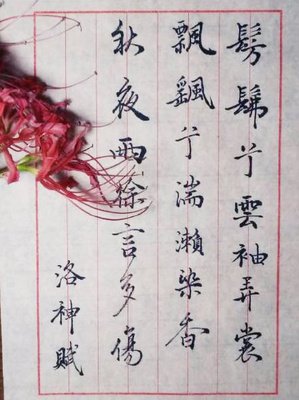 髣髴兮雲袖弄裳
飄颻兮湍瀨染香
秋夜雨徐言多傷
洛神賦